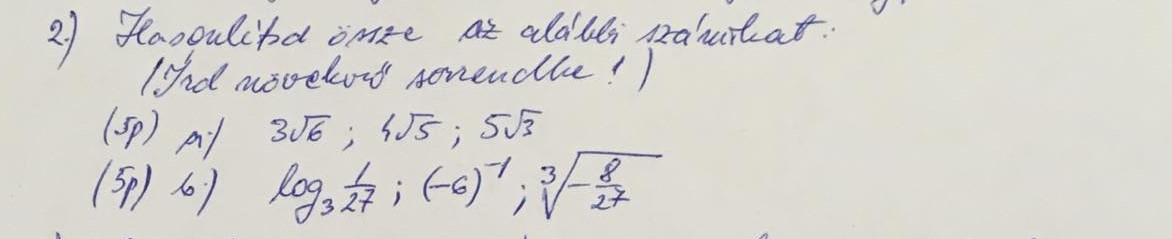 2.) Hasonlítsd össze az alábbi számokat:
(Írd növekvő sorrendbe!)
(5p) a.) 3√6 ; 4√5 ; 5√3
(5p) b.) log₃ 1/27 ; (-6)⁻¹ ; ³√(-8/27)